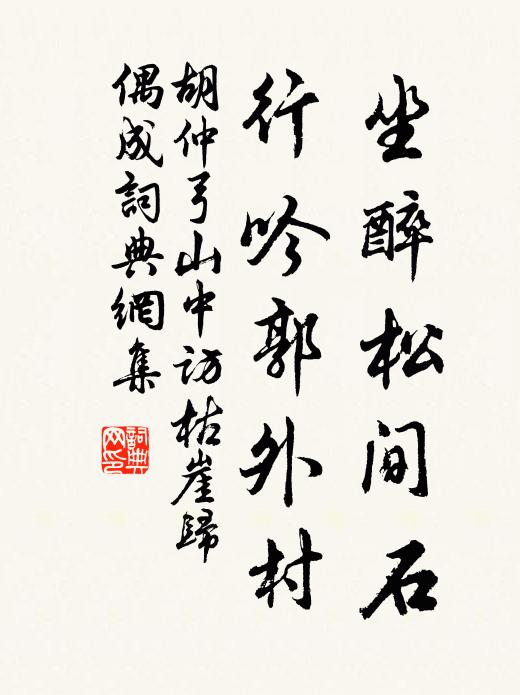 坐醉松间石
行吟郭外村
胡仲弓山中访枯崖歸
偶成詞典網集
詞典
网印